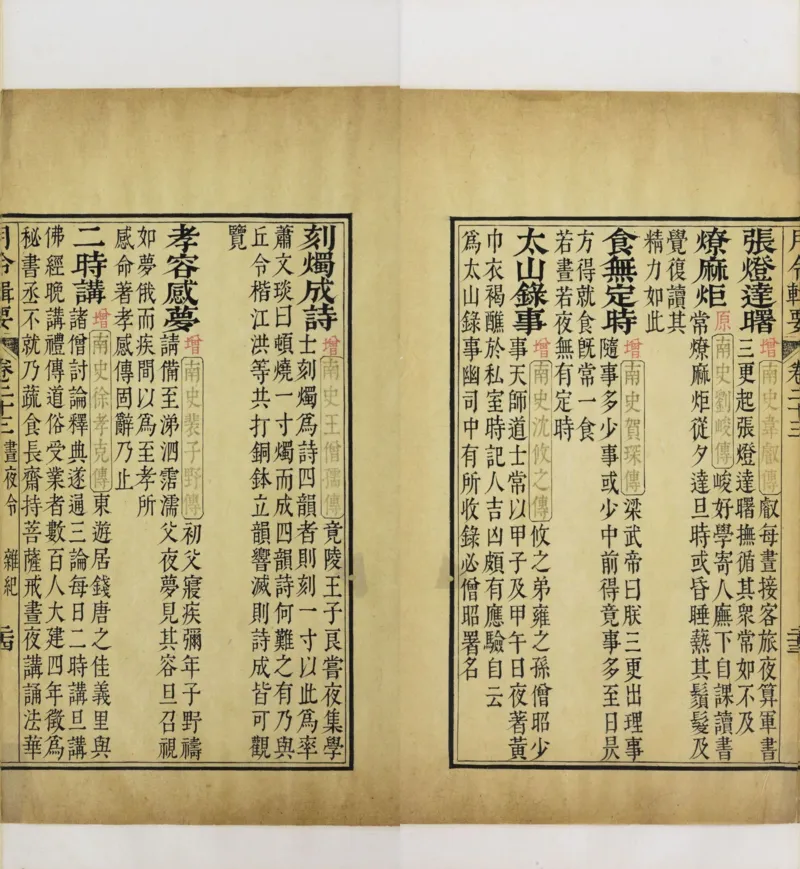 月令輯要 卷二十三 二十三
張燈達曙 增 南史韋叡傳 叡每晝接客旅夜算軍書
三更起張燈達曙撫循其衆常如不及
燎麻炬 原 南史劉峻傳 峻好學寄人廡下自課讀書
常燎麻炬從夕達旦時或昏睡爇其鬚髮及
覺復讀其
精力如此
食無定時 增 南史賀琛傳 梁武帝曰朕三更出理事
隨事多少事或少中前得竟事多至日昃
方得就食既常一食
若晝若夜無有定時
太山錄事 增 南史沈攸之傳 攸之弟雍之孫僧昭少
事天師道士常以甲子及甲午日夜著黃
巾衣褐醮於私室時記人吉凶頗有應驗自云
爲太山錄事幽司中有所收錄必僧昭署名
刻燭成詩 增 南史王僧孺傳 竟陵王子良嘗夜集學
士刻燭爲詩四韻者則刻一寸以此爲率
蕭文琰曰頓燒一寸燭而成四韻詩何難之有乃與
丘令楷江洪等共打銅鉢立韻響滅則詩成皆可觀
覽
孝容感夢 增 南史裴子野傳 初父寢疾彌年子野禱
請備至涕泗霑濡父夜夢見其容旦召視
如夢俄而疾間以爲至孝所
感命著孝感傳固辭乃止
二時講 增 南史徐孝克傳 東遊居錢唐之佳義里與
諸僧討論釋典遂通三論每日二時講旦講
佛經晚講禮傳道俗受業者數百人大建四年徵爲
秘書丞不就乃蔬食長齋持菩薩戒晝夜講誦法華
月令輯要 卷二十三 晝夜令 雜紀 二十四